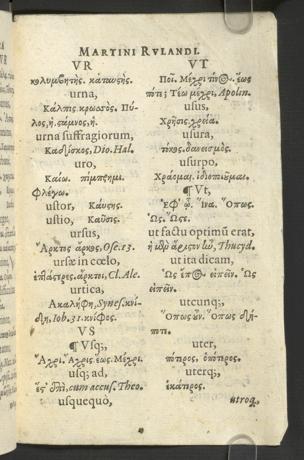 MARTINI RVLANDI.
VR
κολυμβητής. κάπαυσής.
urna,
Κάλπις. κρωσός. Πύ-
λος, ἡ. στάμνος, ἡ.
urna suffragiorum,
Καδίσκος, Dio. Hal.
uro,
Καίω. πίμπρημι.
Φλέγω.
ustor, Καύσης.
ustio, Καῦσις.
ursus,
Ἄρκτος ἄρκος, Ose. 13.
ursæ in cœlo,
ἄρκτοι, Cl. Ale.
urtica,
Ἀκαλήφη, Synes. κνί-
δη, Iob. 31. κνίφος.
VS
¶ Vsq;,
Ἄχρι. Ἄχρις. ἕως. Μέχρι.
usq; ad,
ἐπὶ, cum accus. Theo.
usquequò,
VT
Ποῖ. Μέχρι τίνος. ἕως
πότε; Τέω μέχρι, Apolin.
usus,
Χρῆσις. χρεία.
usura,
τόκος. δανεισμός.
usurpo,
Χράομαι. ἰδιοποιέομαι.
¶ Vt,
Ἐφ' ᾧ. ἵνα. Ὅπως.
Ὡς. Ὥστε.
ut factu optimũ erat,
Thucyd.
ut ita dicam,
Ὡς ἔπος εἰπεῖν. Ὡς
εἰπεῖν.
utcunq;,
Ὅπως οὖν. Ὅπως δή-
ποτε.
uter,
πότερος. ὁπότερος.
uterq;,
ἑκάτερος.
utroq,